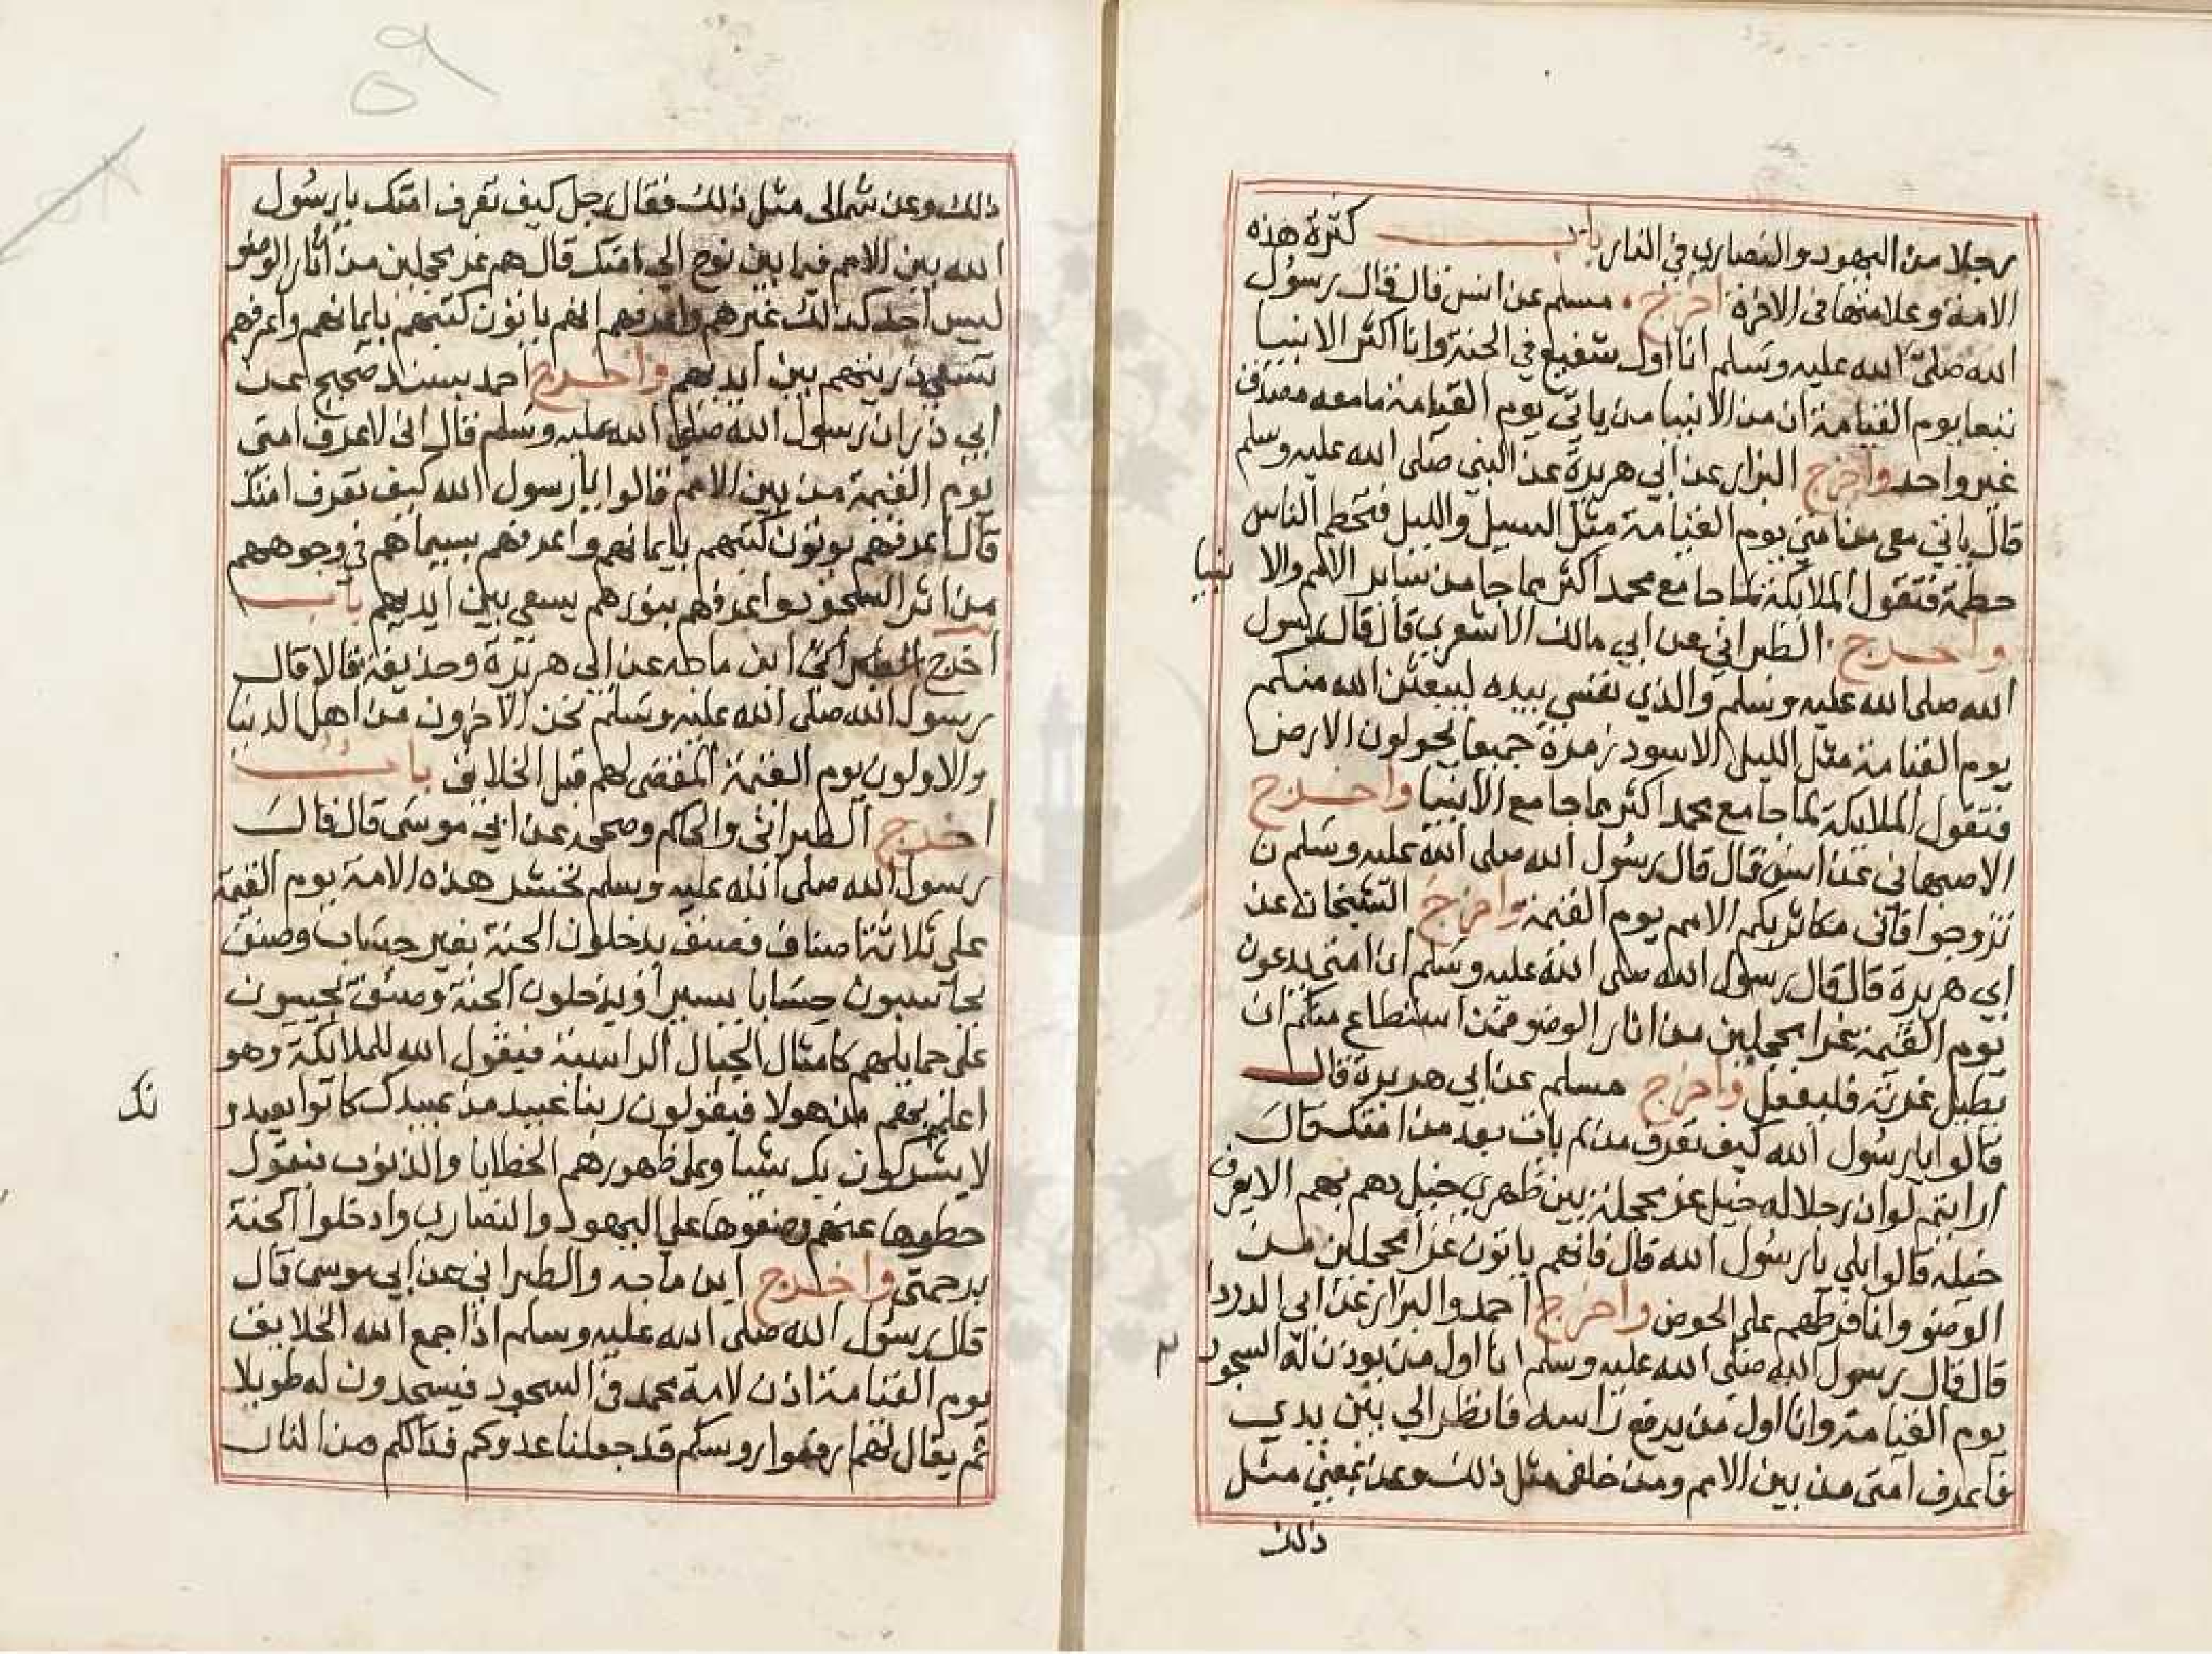 رجلا من اليهود والنصارى في النار باب كثرة هذه
الامة وعلامتها في الاخرة اخرج مسلم عن انس قال قال رسول
الله صلى الله عليه وسلم انا اول شفيع في الجنة وانا اكثر الانبيا
تبعا يوم القيامة ان من الانبيا من ياتي يوم القيامة مامعه مصدق
غير واحد واخرج البزار عن ابي هريرة عن النبي صلى الله عليه وسلم
قال ياتي معي من امتي يوم القيامة مثل السيل والليل فتحطم الناس
حطمة فتقول الملايكة لما جا مع محمد اكثر مما جا من ساير الامم والانبيا
واخرج الطبراني عن ابي مالك الاشعري قال قال رسول
الله صلى الله عليه وسلم والذي نفسي بيده ليبعثن الله منكم
يوم القيامة مثل الليل الاسود زمرة جميعا يحولون الارض
فتقول الملايكة لما جا مع محمد اكثر مما جا مع الانبيا واخرج
الاصبهاني عن انس قال قال رسول الله صلى الله عليه وسلم
تزوجوا فاني مكاثر بكم الامم يوم القيمة واخرج الشيخان عن
ابي هريرة قال قال رسول الله صلى الله عليه وسلم ان امتي يدعون
يوم القيمة غرا محجلين من اثار الوضو فمن استطاع منكم ان
يطيل غرته فليفعل واخرج مسلم عن ابي هريرة قال
قالوا يا رسول الله كيف تعرف من لم يات بعد من امتك قال
ارايتم لو ان رجلا له خيل غر محجلة بين ظهري خيل دهم بهم الا يعرف
خيله قالوا بلي يا رسول الله قال فانهم ياتون غرا محجلين من
الوضو وانا فرطهم علي الحوض واخرج احمد والبزار عن ابي الدردا
قال قال رسول الله صلى الله عليه وسلم انا اول من يوذن له السجود
٢
يوم القيامة وانا اول من يرفع راسه فانظر الي بين يدي
فاعرف امتي من بين الامم ومن خلفي مثل ذلك وعن يميني مثل
ذلك
٥٩
ذلك وعن شمالي مثل ذلك فقال رجل كيف تعرف امتك يا رسول
الله بين الامم فيما بين نوح الي امتك قال هم غر محجلين من اثار الوضو
ليس احد كذلك غيرهم واعرفهم انهم ياتون كتبهم بايمانهم واعرفهم
تسعي ذريتهم بين ايديهم واخرج احمد بسند صحيح عن
ابي ذر ان رسول الله صلى الله عليه وسلم قال اني لاعرف امتي
يوم القيمة من بين الامم قالوا يا رسول الله كيف تعرف امتك
قال اعرفهم يوتون كتبهم بايمانهم واعرفهم بسيماهم في وجوههم
من اثر السجود واعرفهم بنورهم يسعي بين ايديهم باب
اخرج ابن ماجه عن ابي هريرة وحذيفة قالا قال
رسول الله صلى الله عليه وسلم نحن الاخرون من اهل الدنيا
والاولون يوم القيمة المقضى لهم قبل الخلايق باب
اخرج الطبراني والحاكم وصححه عن ابي موسى قال قال
رسول الله صلى الله عليه وسلم تحشر هذه الامة يوم القيمة
علي ثلاثة اصناف فصنف يدخلون الجنة بغير حساب وصنف
يحاسبون حسابا يسيرا ويدخلون الجنة وصنف يجيبون
على حمايلهم كامثال الجبال الراسية فيقول الله للملايكة وهو
اعلم بهم من هولا فيقولون ربنا عبيد من عبيدك كانوا يعبدو
نك
لا يشركون بك شيا وعلى ظهورهم الخطايا والذنوب فيقول
حطوها عنهم وضعوها علي اليهود والنصارى وادخلوا الجنة
برحمتى واخرج ابن ماجه والطبراني عن ابي موسى قال
قال رسول الله صلى الله عليه وسلم اذا جمع الله الخلايق
يوم القيامة اذن لامة محمد في السجود فيسجدون له طويلا
ثم يقال لهم ارفعوا روسكم قد جعلنا عدوكم فداكم من النار